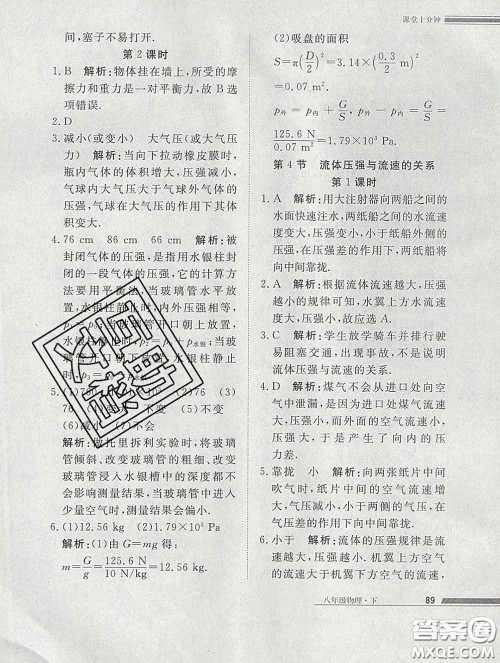 课堂十分钟
间，塞子不易打开．
第 2 课时
1. B　解析：物体挂在墙上，所受的摩
擦力和重力是一对平衡力，故 B 选
项错误．
2. D
3. 减小(或变小)　大气压(或大气压
力)　解析：当向下拉动橡皮膜时，
瓶内气体的体积增大，压强减小，
气球内大气压大于气球外气体的
压强，因此在大气压的作用下体积
变大．
4. 76 cm　86 cm　66 cm　解析：被
封闭气体的压强，是指用水银柱封
闭的一段气体的压强，它的计算方
法要用平衡法．当玻璃管水平放
置，水银柱静止时，内外压强相等，
开口朝上，水
银柱静止时
璃管开口朝下
时
5. (1)　(2)76　(3)
(5)不变
(6)　(7)不变
解析：做托里拆利实验时，将玻璃
管倾斜、改变玻璃管的粗细、改变玻
璃管浸入水银槽中的深度都不
会影响测量结果，当玻璃管中进入
少量空气时，其测量结果会偏小．
6. (1)12.56 kg　(2)1.79×10³ Pa
解析：(1)由 G=mg 得：
m=G/g=125.6 N/10 N/kg=12.56 kg.
(2)吸盘的面积
S=π(D/2)²=3.14×(0.3/2 m)²
=0.07 m².
p外=p内+G/S，p外－p内=G/S=
125.6 N/0.07 m²=1.79×10³ Pa.
第 4 节　流体压强与流速的关系
第 1 课时
1. A　解析：用大注射器向两船之间的
水面快速注水，两船之间的水流速
度变大，压强变小，小于纸船外侧的
压强，在压强差的作用下，两纸船将
向中间靠拢．
2. A　解析：根据流体流速越大，压强
越小的规律可知，水翼上方水流速
度大，压强变小．
3. C　解析：学生放学骑车并排行驶
易阻塞交通，出现事故，不是说明
流体压强与流速的关系．
4. D　解析：煤气不会从进口处向空
气中泄漏，是因为进口处煤气流速
大，压强小，而外面的空气流速小，
压强大，于是产生了向内的压
力．
5. 靠拢　小　解析：向两张纸片中间
吹气时，纸片中间的空气流速增
大，压强减小．
6. 小于　解析：流体的压强规律是流
速越大，压强越小．机翼上方空气
的流速大于机翼下方空气的流速，
八年级物理·下　89
答案圈
MXQE.COM